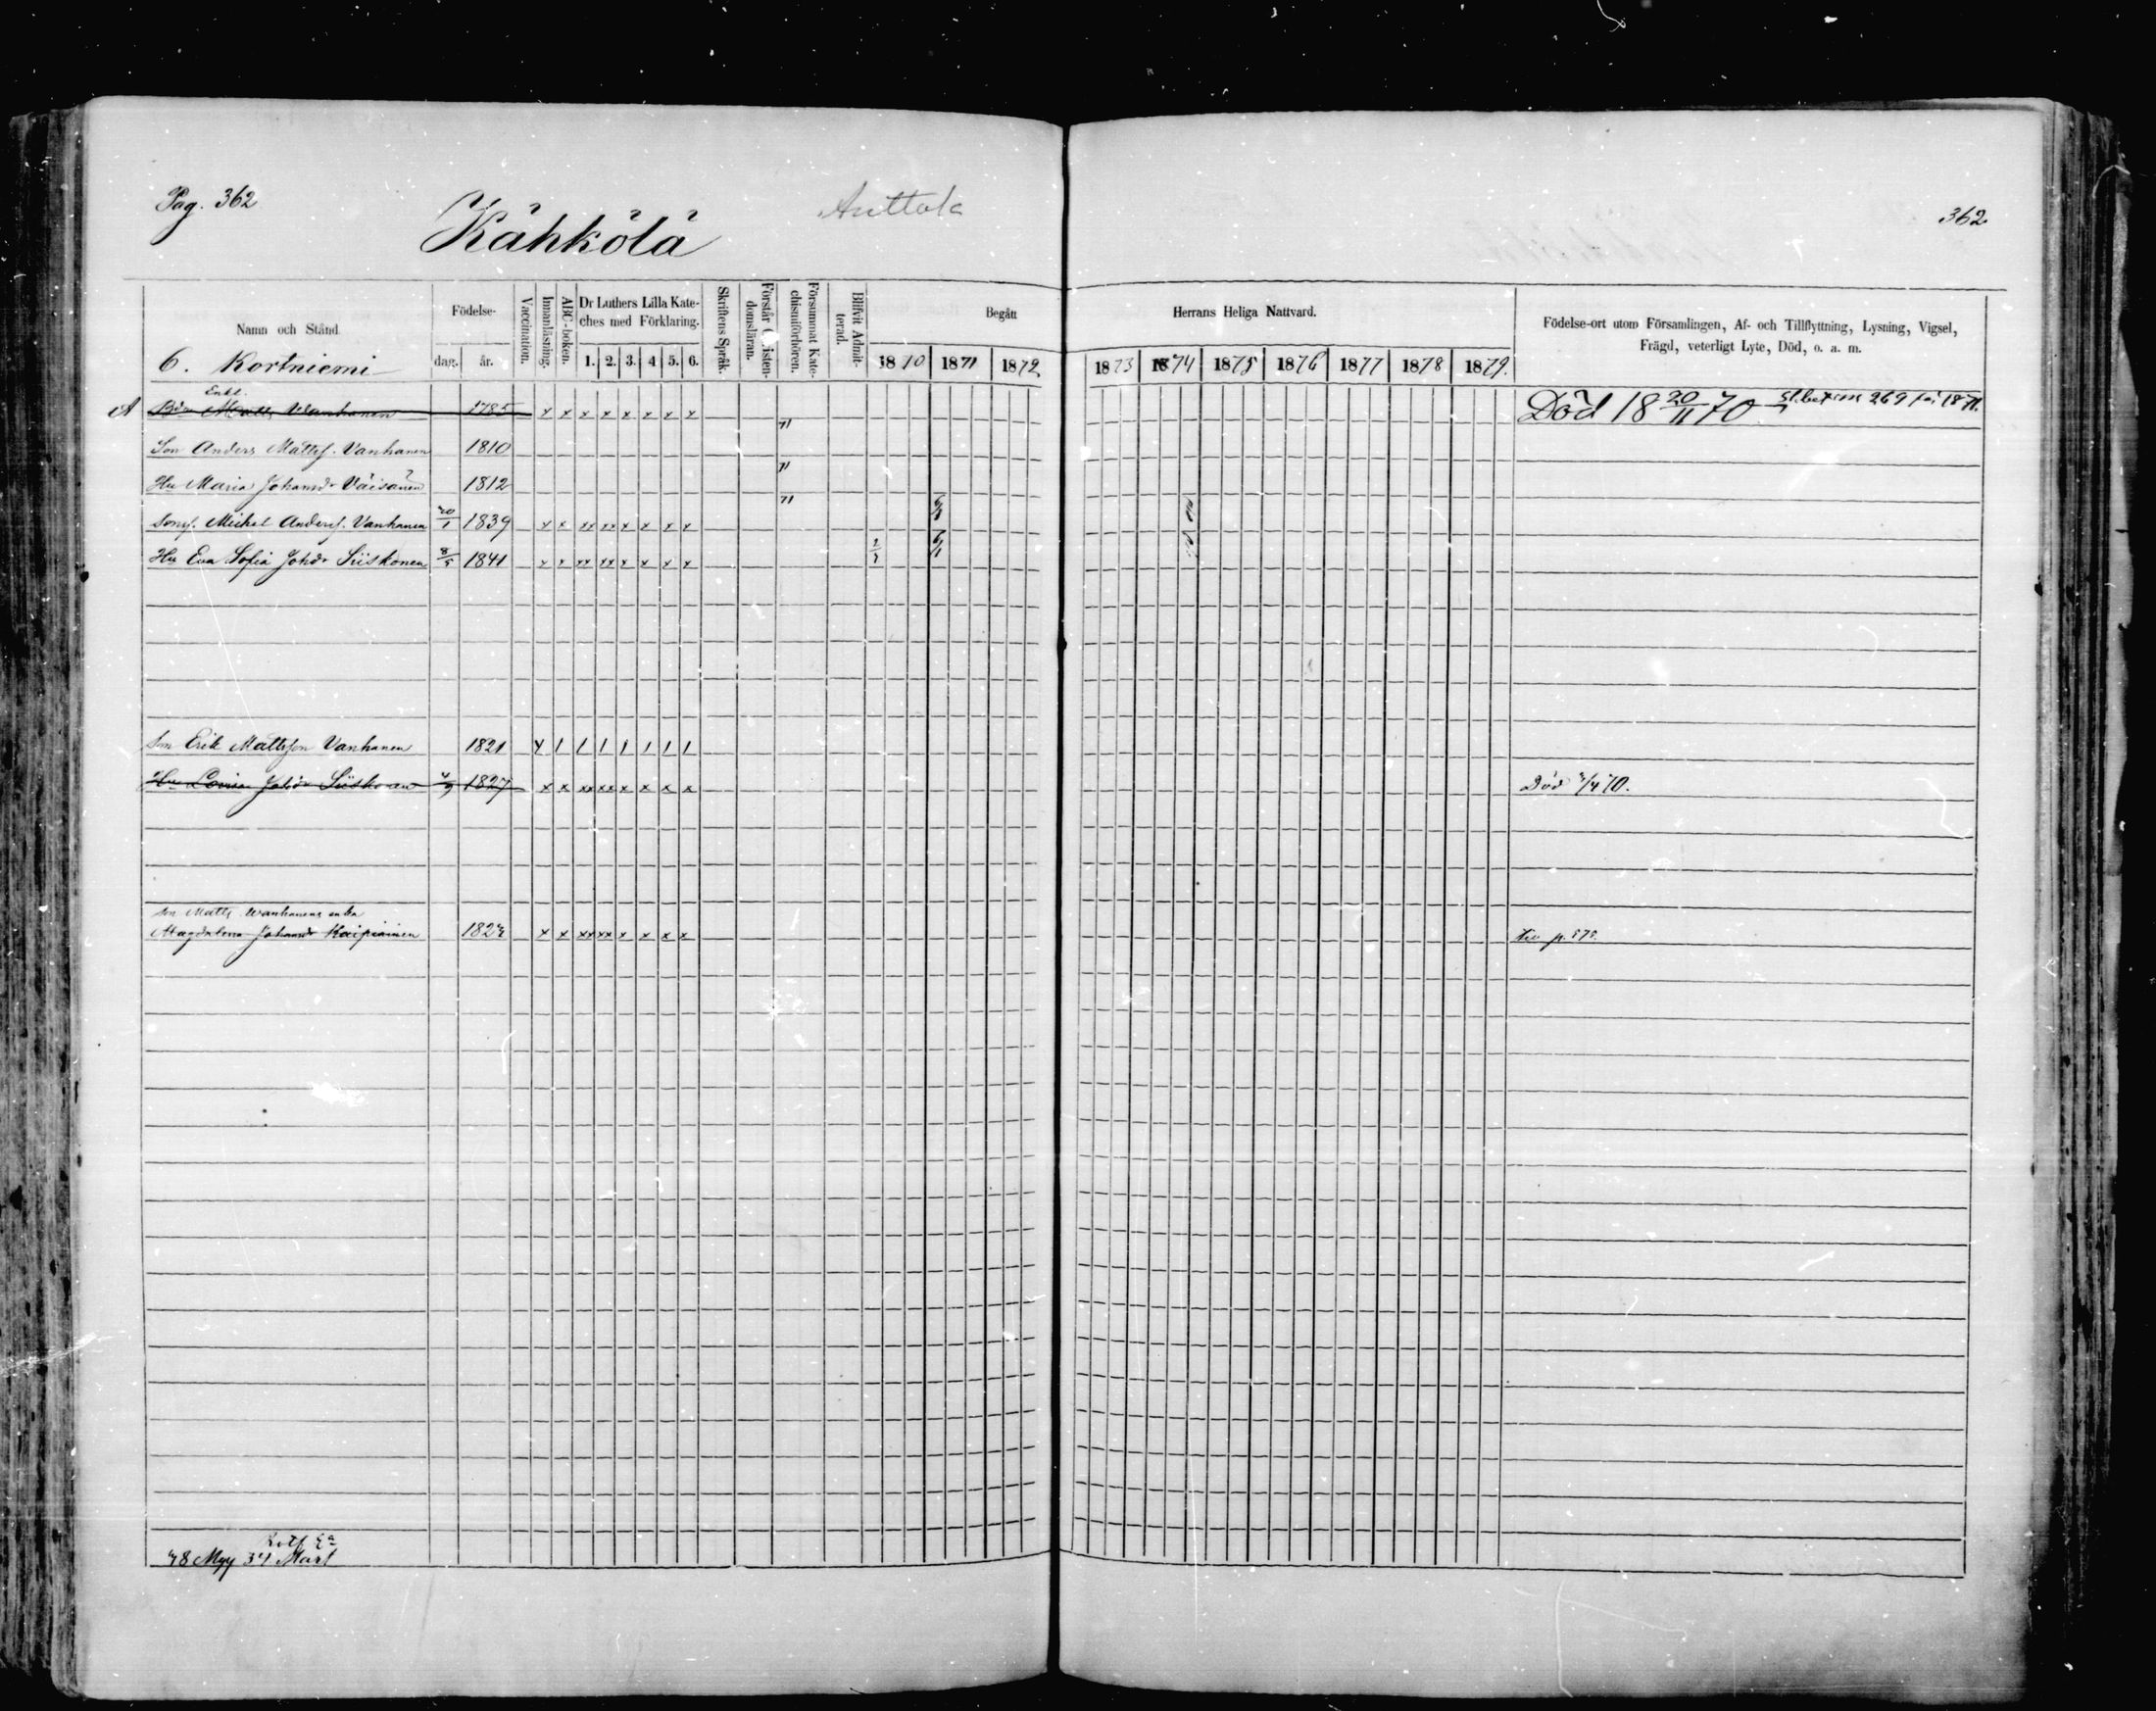 Pag. 362
Kähkölä
Anttola
362
Namn och Stånd.
Födelse-
dag. år.
Vaccination.
Innanläsning.
ABC-boken.
Dr Luthers Lilla Kate-
ches med Förklaring.
1. 2. 3. 4 5. 6.
Skriftens Språk.
Förstår Christen-
domsläran.
Försummat Kate-
chismiförhören.
Blifvit Admit-
terad.
Begått Herrans Heliga Nattvard.
1870 1871 1872 1873 1874 1875 1876 1877 1878 1879.
Födelse-ort utom Församlingen, Af- och Tillflyttning, Lysning, Vigsel,
Frägd, veterligt Lyte, Död, o. a. m.
6. Kortniemi
Enkl.
A Bdn Matts Vanhanen 1785 x x x x x x x x Död 18 20/11 70 269 1871.
71
Son Anders Mattss. Vanhanen 1810
71
Hu Maria Johansdr Väisänen 1812
71
Sons. Michel Anderss. Vanhanen 20/1 1839 x x xx xx x x x x
Hu Eva Sofia Johdr Siiskonen 8/5 1841 x x xx xx x x x x
Son Erik Mattsson Vanhanen 1821
Hu Lovisa Johdr Siiskonen 1827 x x xx xx x x x x Död /4 70.
Son Matts Wanhanens enka
Magdalena Johansdr Kaipiainen 182 x x xx xx x x x x p. 878.
Rotf
48 Myy 34 Mart